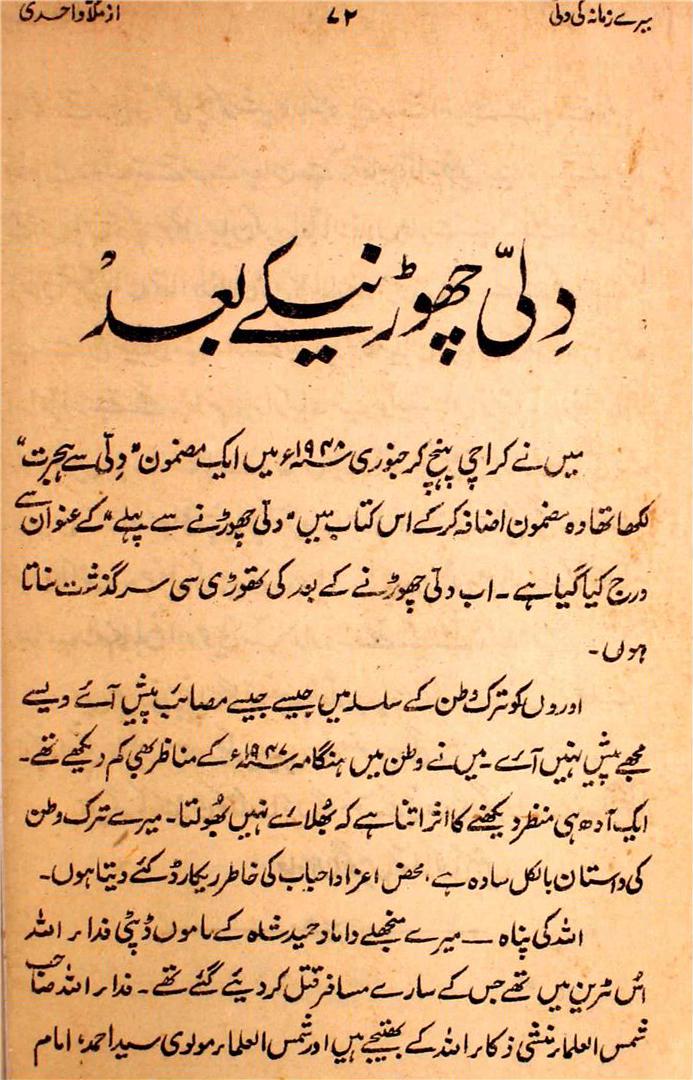 میرے زمانہ کی دلی ۷۲ از ملا واحدی
دِلّی چھوڑنیکے بعد
میں نے کراچی پہنچ کر جنوری ۱۹۴۸ء میں ایک مضمون "دِلّی سے ہجرت"
لکھا تھا وہ مضمون اضافہ کر کے اس کتاب میں "دلّی چھوڑنے سے پہلے" کے عنوان سے
درج کیا گیا ہے۔ اب دلّی چھوڑنے کے بعد کی تھوڑی سی سرگذشت سناتا
ہوں۔
اوروں کو ترک وطن کے سلسلہ میں جیسے جیسے مصائب پیش آئے ویسے
مجھے پیش نہیں آئے۔ میں نے وطن میں ہنگامہ ۱۹۴۷ء کے مناظر بھی کم دیکھے تھے۔
ایک آدھ ہی منظر دیکھنے کا اثر اتنا ہے کہ بُھلائے نہیں بُھولتا۔ میرے ترک وطن
کی داستان بالکل سادہ ہے، محض اعزا و احباب کی خاطر ریکارڈ کئے دیتا ہوں۔
اللہ کی پناہ — میرے منجھلے داماد حمید شاہ کے ماموں ڈپٹی فداء اللہ
اُس ٹرین میں تھے جس کے سارے مسافر قتل کر دیئے گئے تھے۔ فداء اللہ صاحب
شمس العلماء منشی ذکاء اللہ کے بھتیجے ہیں اور شمس العلماء مولوی سید احمد، امام